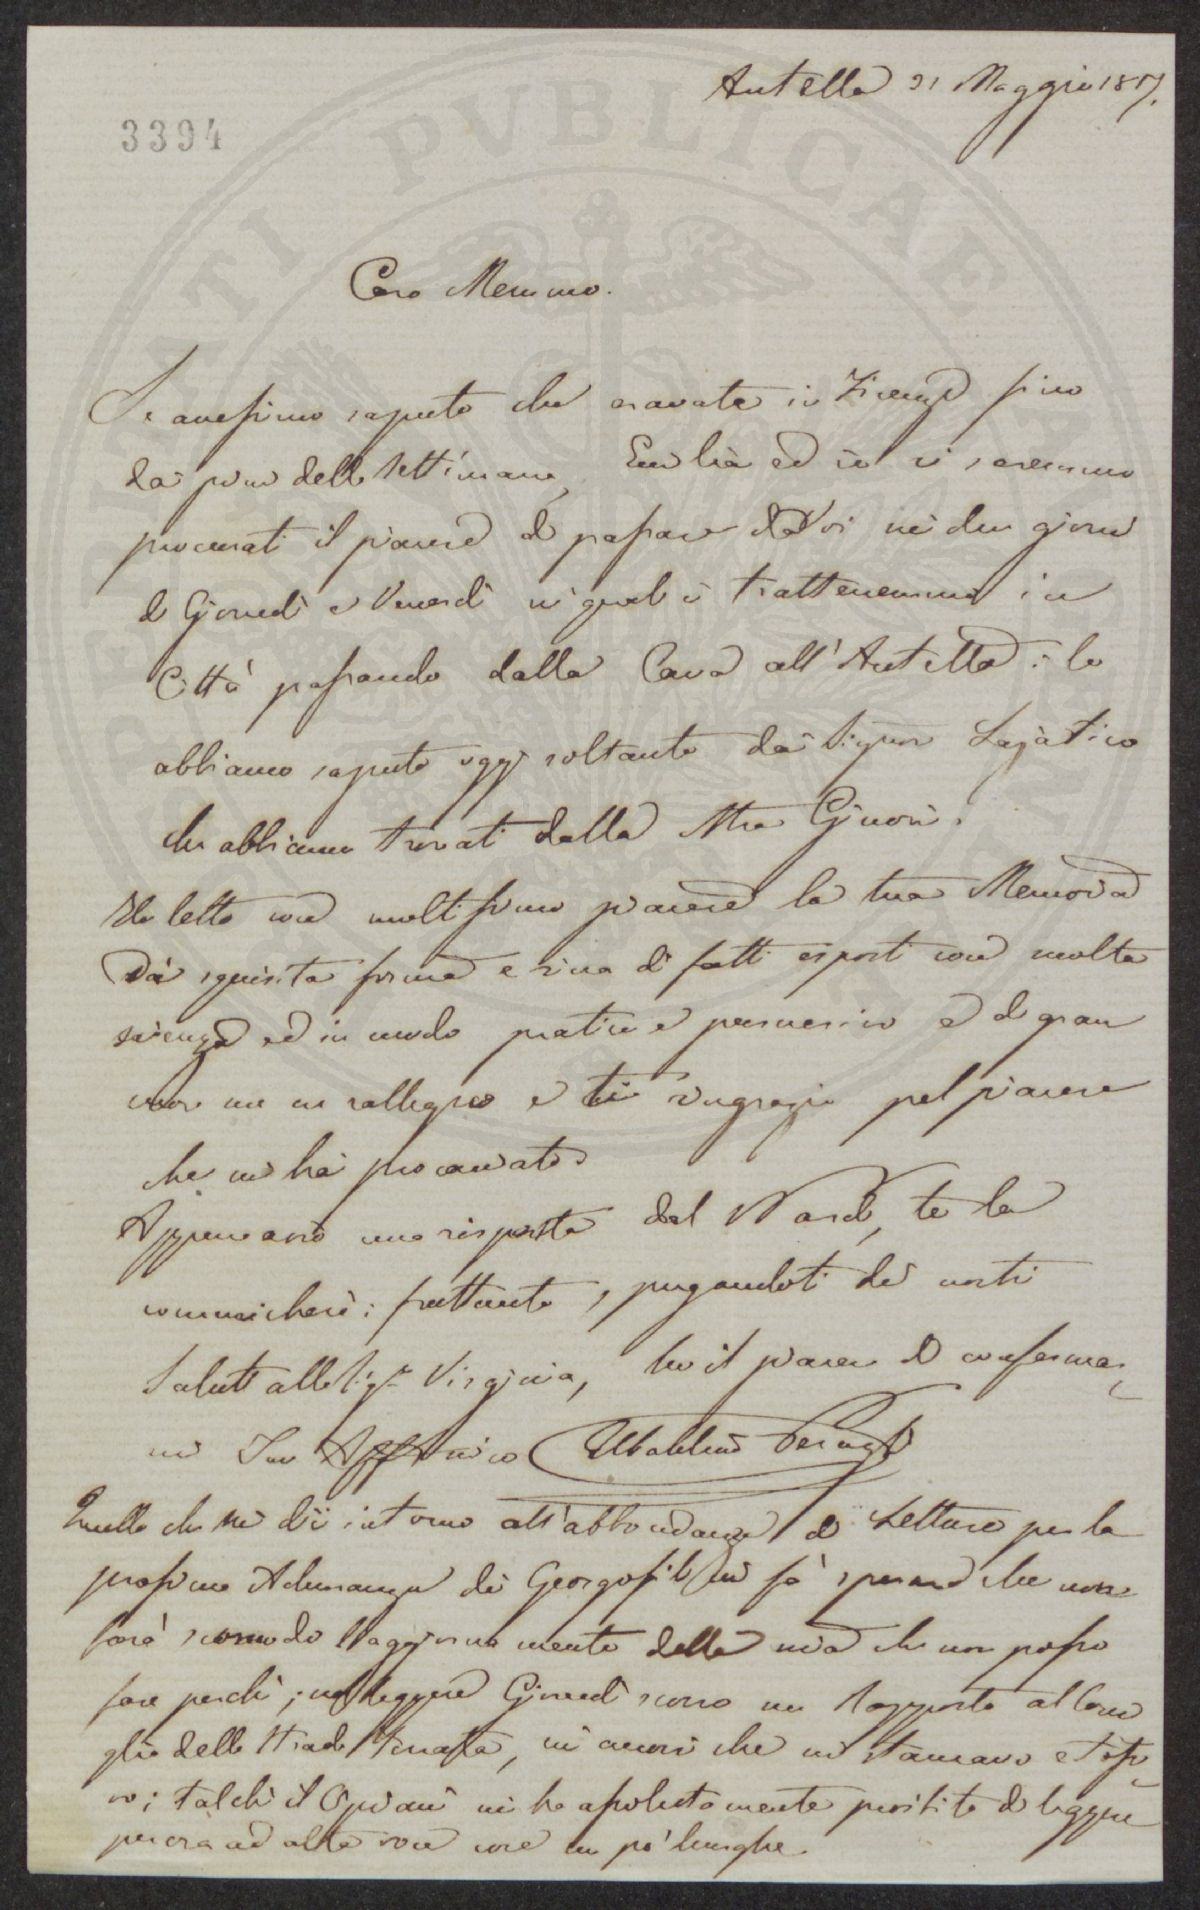 Antella 31 Maggio 1857.
3394
Caro Memmo.
Se avessimo saputo che eravate in Firenze fino
da primi della settimana, Emilia ed io ci saremmo
procurati il piacere di passare da Voi nei due giorni
di Giovedì e Venerdì nei quali ci trattenemmo in
Città passando dalla Cava all'Antella: lo
abbiamo saputo oggi soltanto dai Signori Lajatico
che abbiamo trovati dalla Mra Ginori.
Ho letto con moltissimo piacere la tua Memoria
di squisita forma e ricca di fatti esposti con molta
scienza ed in modo pratico e persuasivo e di gran
cuor me ne rallegro e ti ringrazio pel piacere
che mi hai procurato.
Appena avrò una risposta dal Nardi, te la
comunicherò: frattanto, pregandoti dei nostri
saluti alla Sigra Virginia, ho il piacere di confermar
mi Tuo Affmo Amico Ubaldino Peruzzi
Quello che mi dici intorno all'abbondanza di Letture per la
prossima Adunanza dei Georgofili mi fa sperare che non
sarà scomodo l'aggiornamento della mia che non posso
fare perchè, nel leggere Giovedì scorso un Rapporto al Consi
glio delle Strade Ferrate, mi accorsi che mi stancavo e tossi
vo; talchè il Cipriani mi ha assolutamente proibito di leggere
per ora ad alta voce cose un po' lunghe.